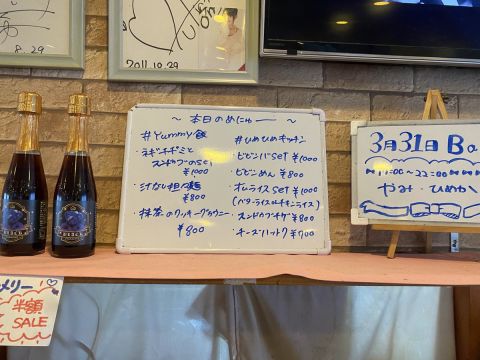 8.29
2011.10.29
～ 本日のめにゅー ～
#Yummy飯
・ネギチヂミと
スンドゥブのset
¥1000
・汁なし担々麺
¥800
・抹茶のクッキーブラウニー
¥800
#ひめひめキッチン
・ビビンバset ¥1000
・ビビンめん ¥800
・オムライスset ¥1000
(バターライスorチキンライス)
・スンドゥブチゲ ¥800
・チーズハットグ ¥700
3月31日 Ba
17:00～22:00
やみ・ひめか
メリー
半額
SALE